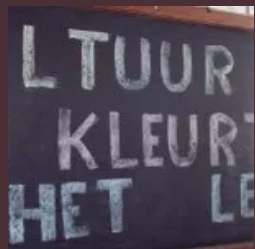 LTUUR
KLEURT
HET LE